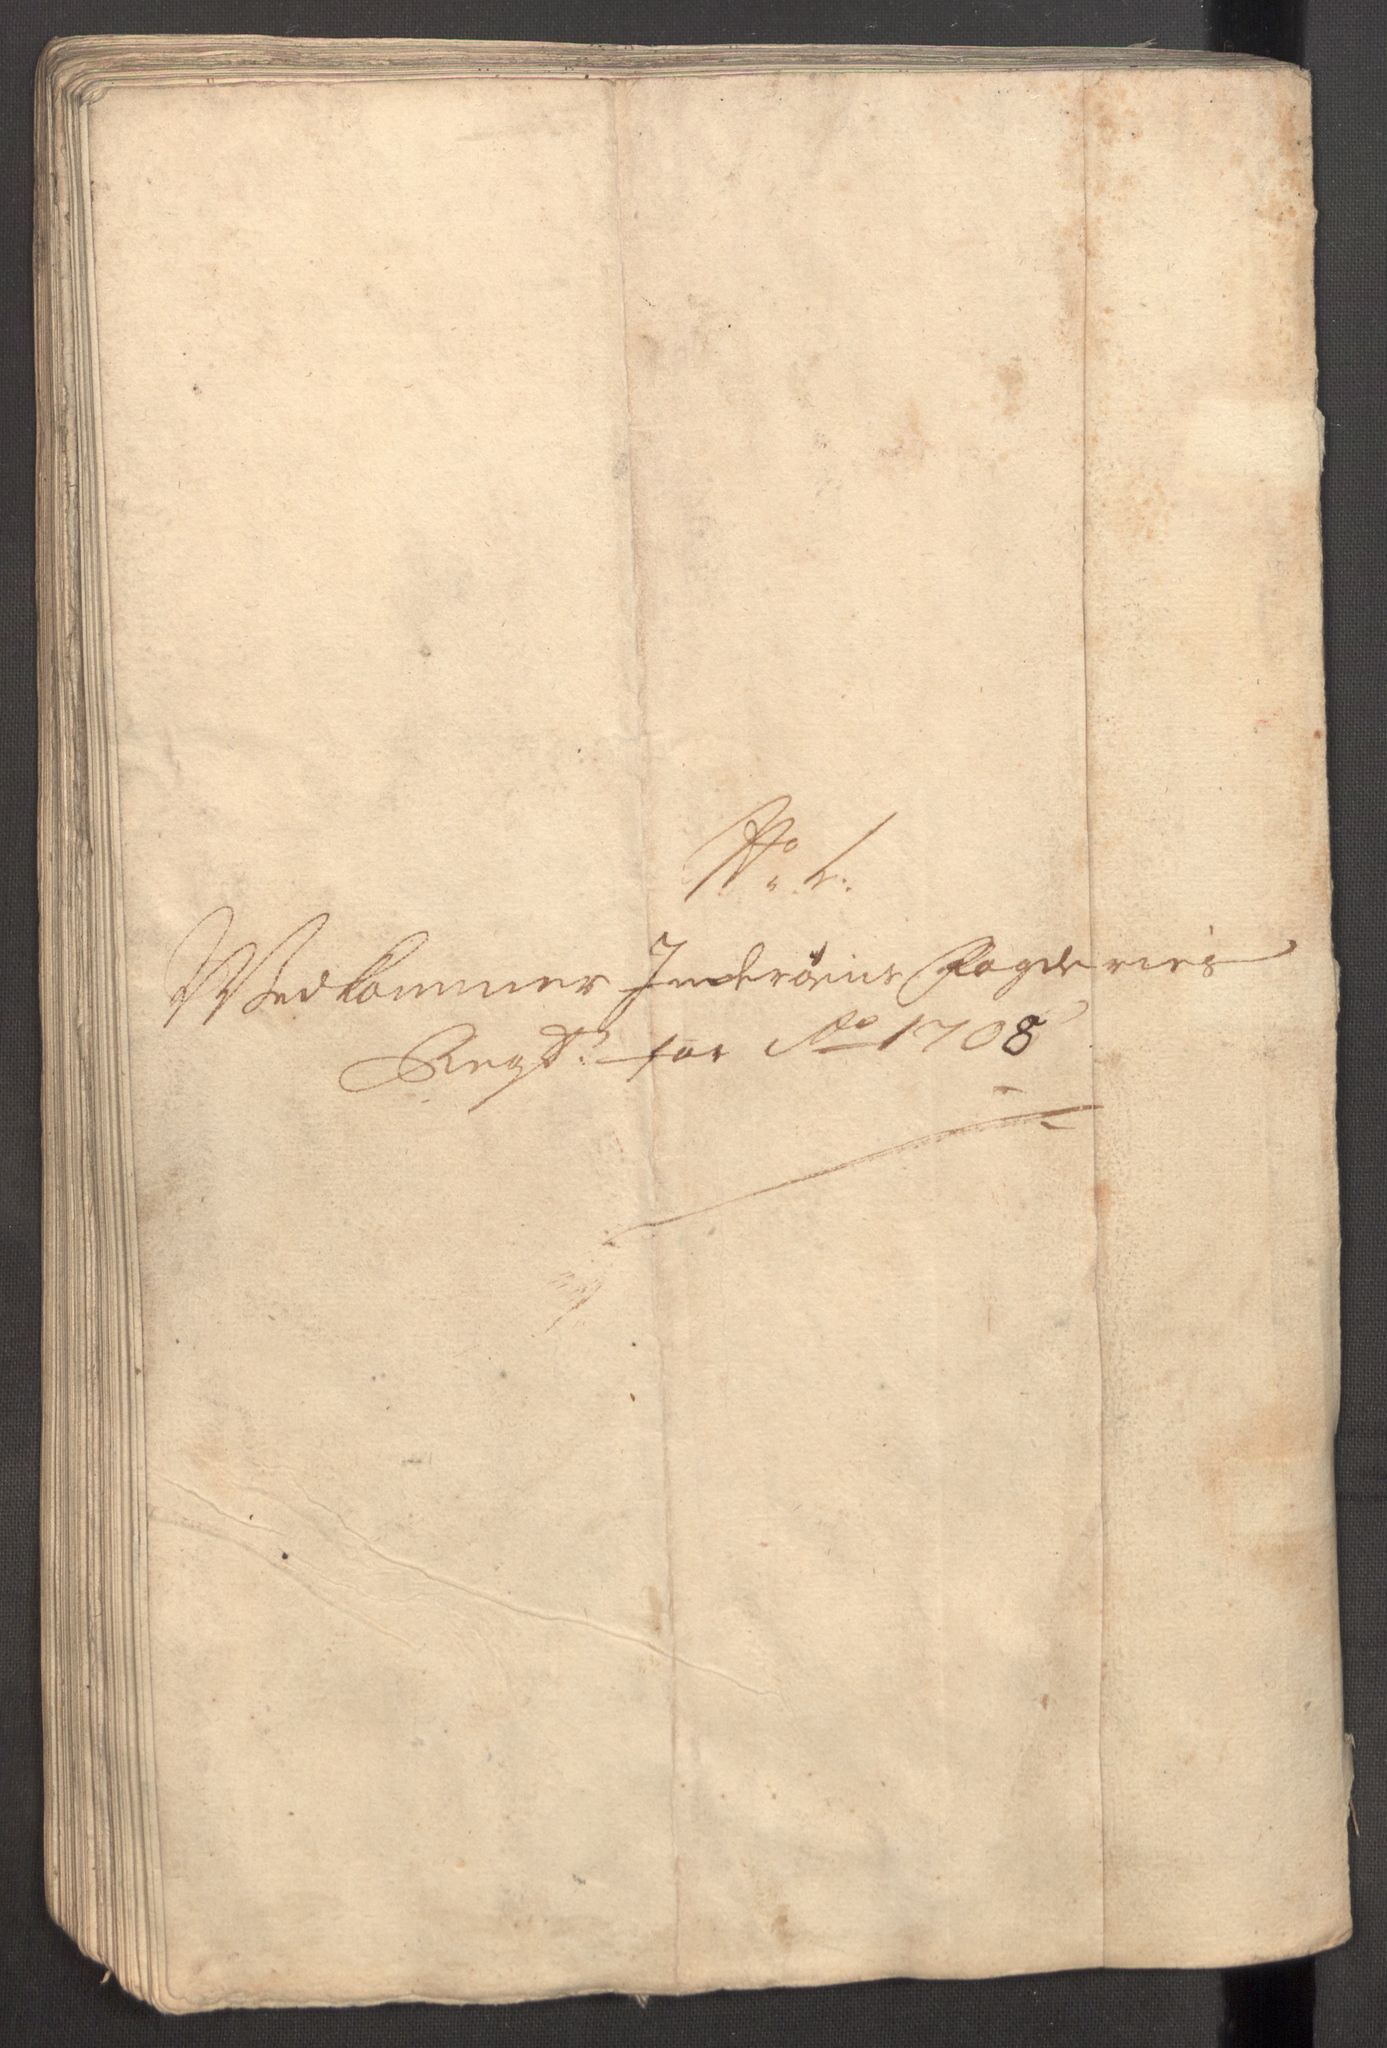 No. 1.
Vedkommer Inderöens Fogderies
Regsk: for Ao 1708